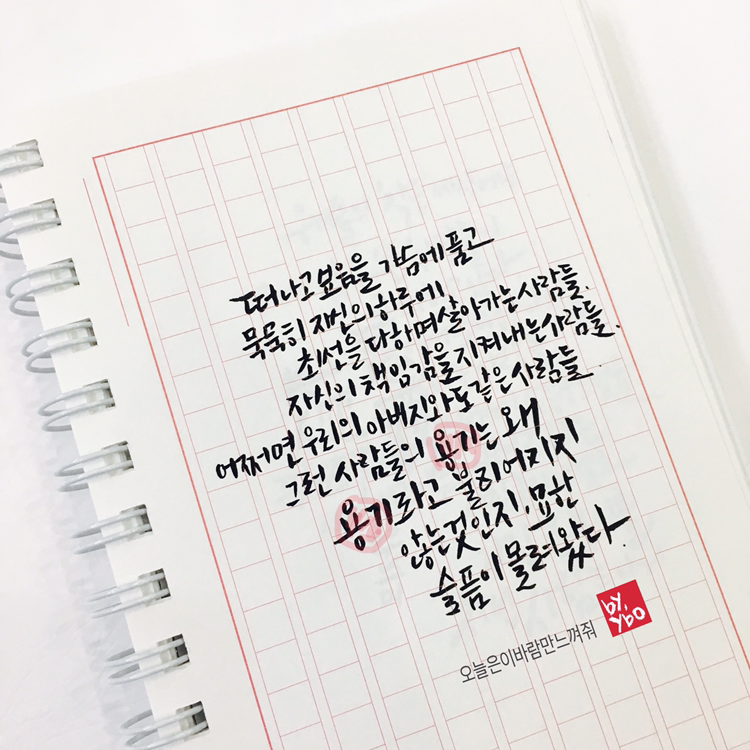 떠나고 싶음을 가슴에 품고
묵묵히 자신의 하루에
최선을 다하며 살아가는 사람들.
자신의 책임감을 지켜내는 사람들.
어쩌면 우리의 아버지와도 같은 사람들.
그런 사람들의 용기는 왜
용기라고 불리어지지
않는것인지, 묘한
슬픔이 몰려왔다.
오늘은이바람만느껴줘
by.
ybo